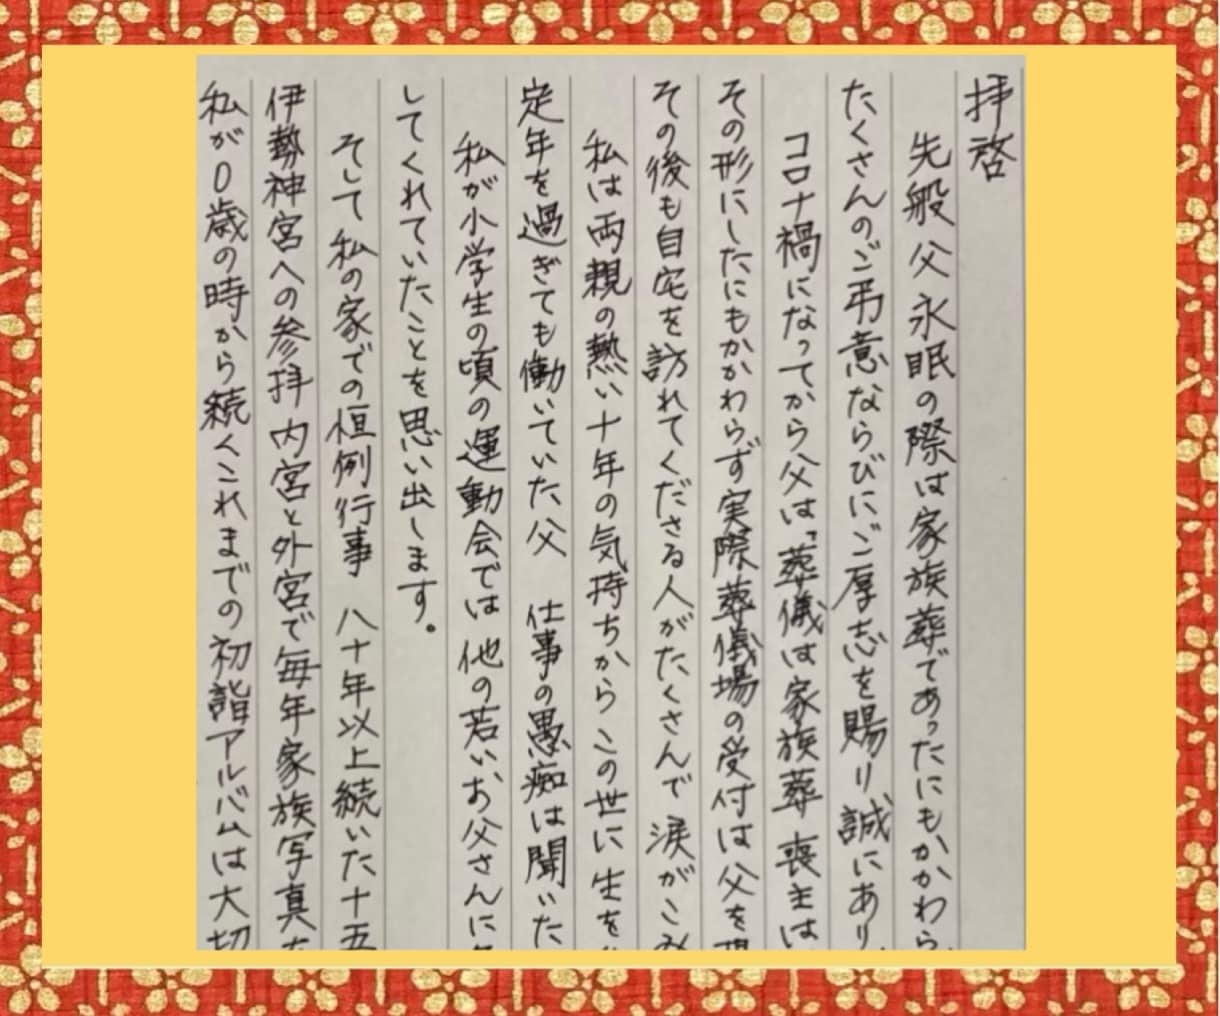 拝啓
先般父永眠の際は家族葬であったにもかかわら
たくさんのご弔意ならびにご厚志を賜り誠にあり
コロナ禍になってから父は「葬儀は家族葬 喪主は
その形にしたにもかかわらず実際葬儀場の受付は父を
その後も自宅を訪れてくださる人がたくさんで 涙がこみ
私は両親の熱い十年の気持ちからこの世に生を
定年を過ぎても働いていた父 仕事の愚痴は聞いた
私が小学生の頃の運動会では他の若いお父さんに
してくれていたことを思い出します。
そして私の家での恒例行事 八十年以上続いた十五
伊勢神宮への参拝 内宮と外宮で毎年家族写真
私が0歳の時から続くこれまでの初詣アルバムは大切